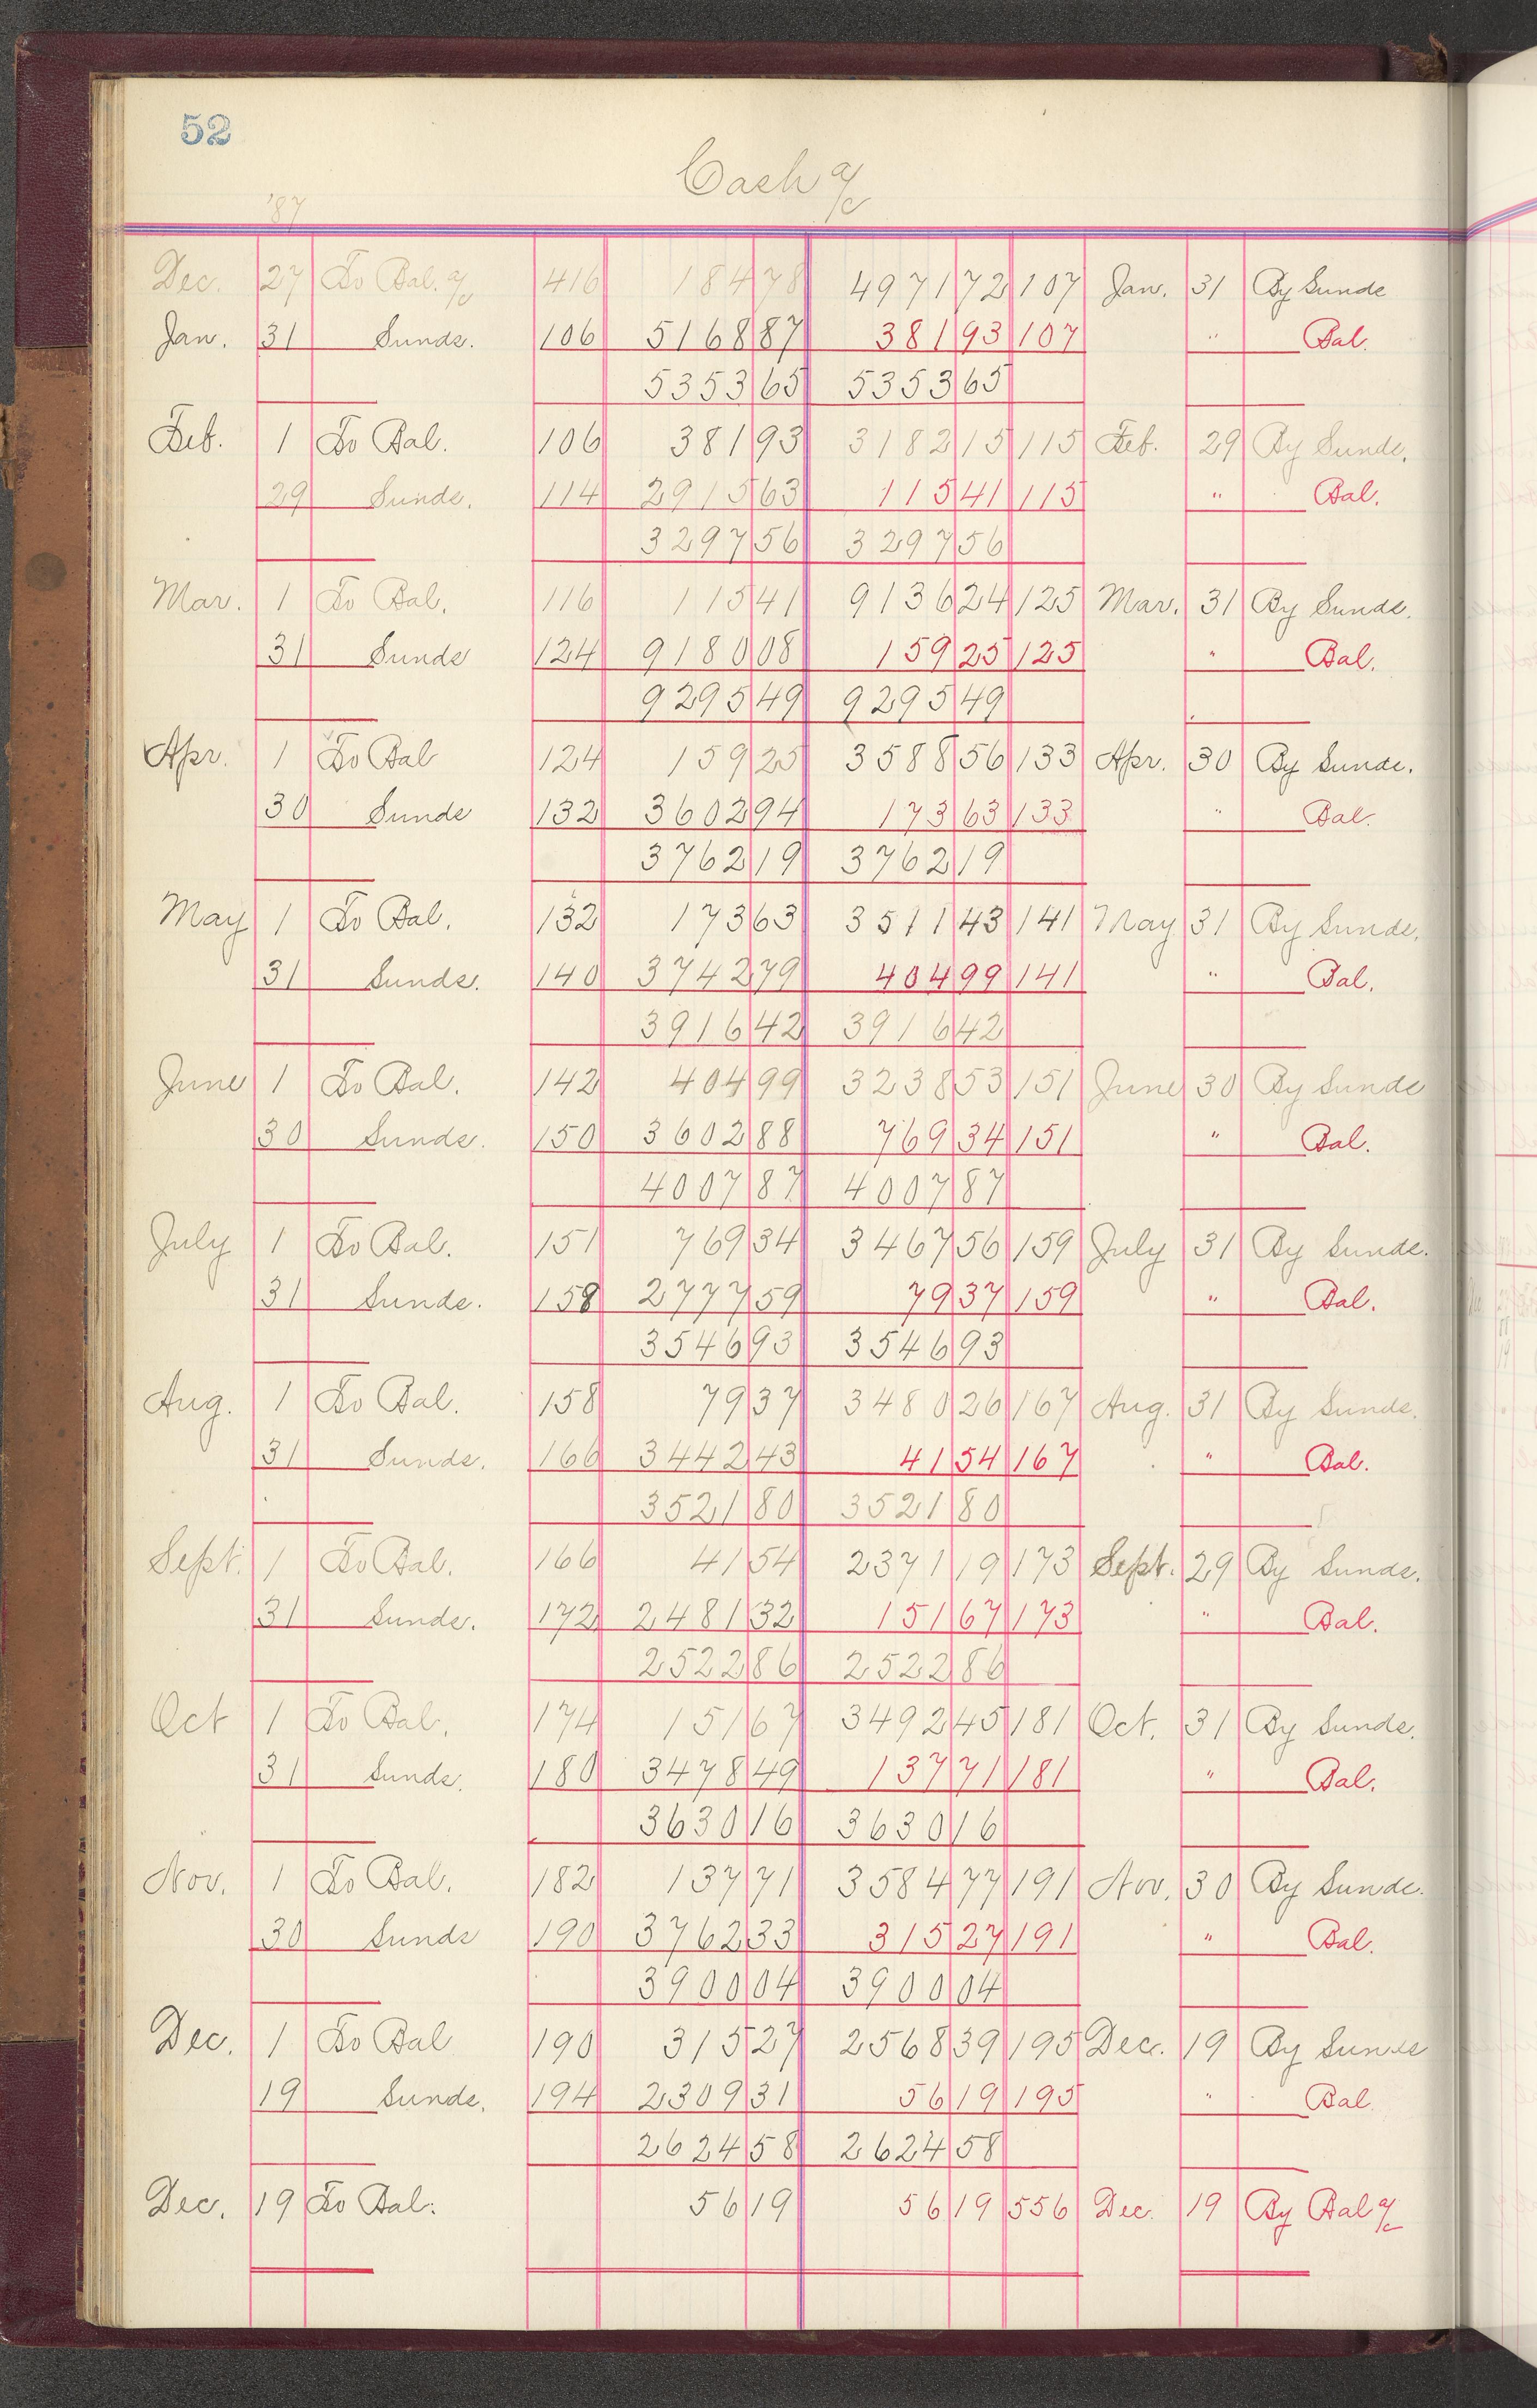 52
Cash a/c
'87
Dec. 27 To Bal. a/c 416 184 78 4971 72 107 Jan. 31 By Sunds
Jan. 31 Sunds. 106 5168 87 381 93 107 " Bal.
5353 65 5353 65
Feb. 1 To Bal. 106 381 93 3182 15 115 Feb. 29 By Sunds.
29 Sunds. 114 2915 63 115 41 115 " Bal.
3297 56 3297 56
Mar. 1 To Bal. 116 115 41 9136 24 125 Mar. 31 By Sunds.
31 Sunds 124 9180 08 159 25 125 " Bal.
9295 49 9295 49
Apr. 1 To Bal 124 159 25 3588 56 133 Apr. 30 By Sunds.
30 Sunds 132 3602 94 173 63 133 " Bal.
3762 19 3762 19
May 1 To Bal. 132 173 63 3511 43 141 May 31 By Sunds.
31 Sunds. 140 3742 79 404 99 141 " Bal.
3916 42 3916 42
June 1 To Bal. 142 404 99 3238 53 151 June 30 By Sunds
30 Sunds. 150 3602 88 769 34 151 " Bal.
4007 87 4007 87
July 1 To Bal. 151 769 34 3467 56 159 July 31 By Sunds.
31 Sunds. 158 2777 59 79 37 159 " Bal.
3546 93 3546 93
Aug. 1 To Bal. 158 79 37 3480 26 167 Aug. 31 By Sunds.
31 Sunds. 166 3442 43 41 54 167 " Bal.
3521 80 3521 80
Sept. 1 To Bal. 166 41 54 2371 19 173 Sept. 29 By Sunds.
31 Sunds. 172 2481 32 151 67 173 " Bal.
2522 86 2522 86
Oct 1 To Bal. 174 151 67 3492 45 181 Oct. 31 By Sunds.
31 Sunds. 180 3478 49 137 71 181 " Bal.
3630 16 3630 16
Nov. 1 To Bal. 182 137 71 3584 77 191 Nov. 30 By Sunds.
30 Sunds 190 3762 33 315 27 191 " Bal.
3900 04 3900 04
Dec. 1 To Bal 190 315 27 2568 39 195 Dec. 19 By Sunds
19 Sunds. 194 2309 31 56 19 195 " Bal.
2624 58 2624 58
Dec. 19 To Bal. 56 19 56 19 556 Dec. 19 By Bal a/c